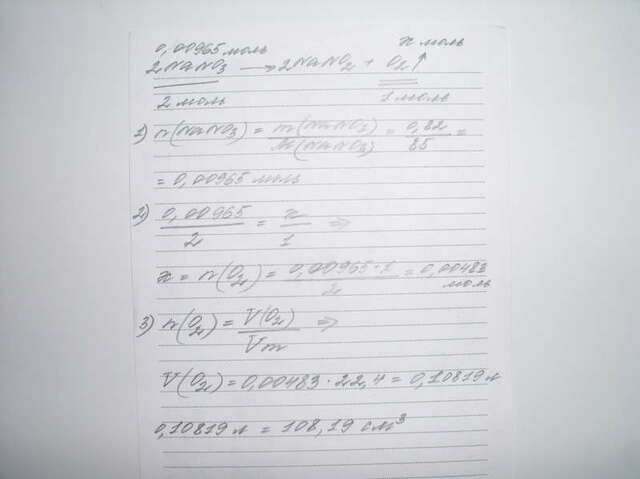 0,00965 моль x моль
2NaNO3 → 2NaNO2 + O2↑
2 моль 1 моль
1) n(NaNO3) = m(NaNO3)/M(NaNO3) = 0,82/85 =
= 0,00965 моль
2) 0,00965/2 = x/1 ⇒
x = n(O2) = 0,00965·1/2 = 0,00483 моль
3) n(O2) = V(O2)/Vm ⇒
V(O2) = 0,00483·22,4 = 0,10819 л
0,10819 л = 108,19 см³